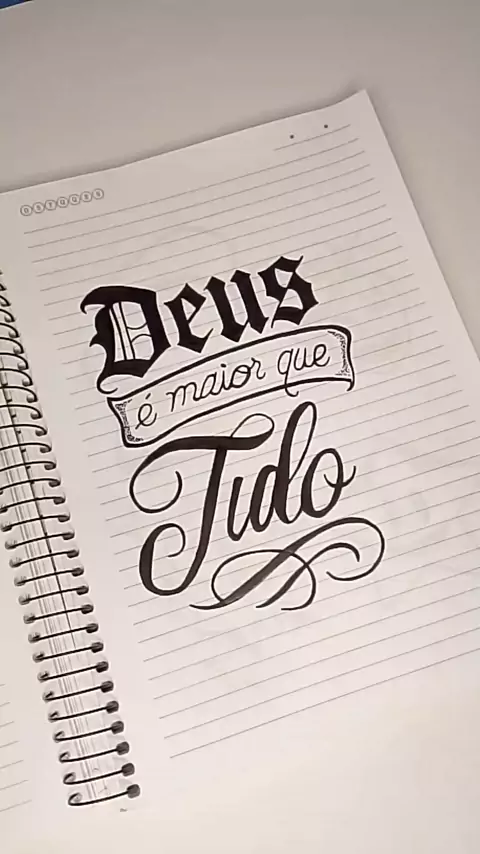 DSTQQSS
Deus
é maior que
Tudo